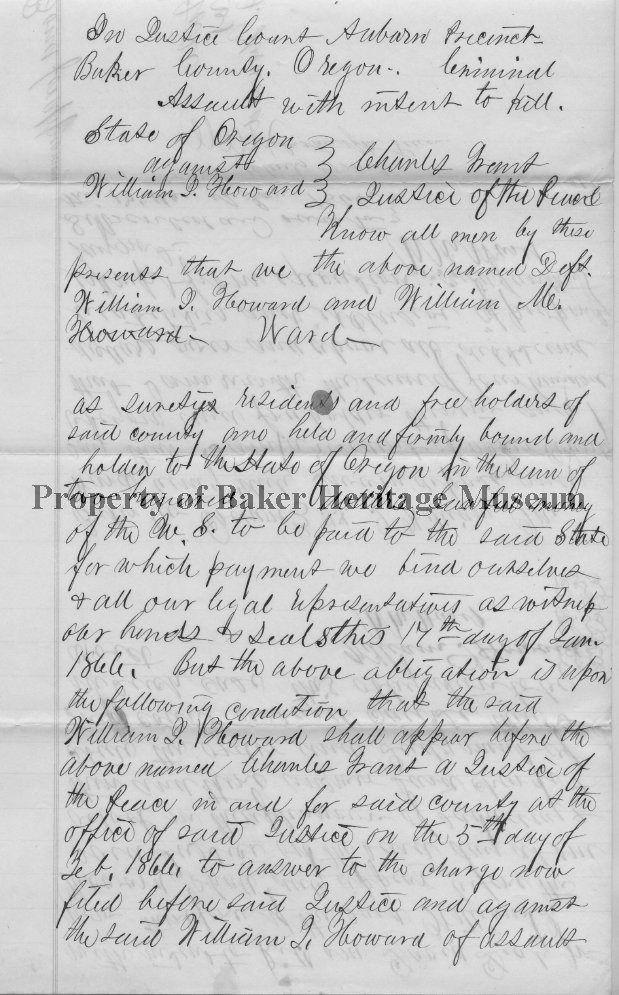 In Justice Court Auburn Precinct
Baker County. Oregon. Criminal
Assault with intent to Kill.
State of Oregon
against
William J. Howard
Charles Grant
Justice of the Peace
Know all men by these
presents that we the above named Deft.
William J. Howard and William Mc.
Howard Ward
as suretys residents and free holders of
said county are held and firmly bound and
holden to the State of Oregon in the sum of
two hundred dollars lawful money
Property of Baker Heritage Museum
of the U. S. to be paid to the said State
for which payment we bind ourselves
& all our legal representatives as witness
our hands & seals this 17th day of Jan.
1866. But the above obligation is upon
the following condition that the said
William J. Howard shall appear before the
above named Charles Grant a Justice of
the Peace in and for said county at the
office of said Justice on the 5th day of
Feb. 1866. to answer to the charge now
filed before said Justice and against
the said William J. Howard of assault